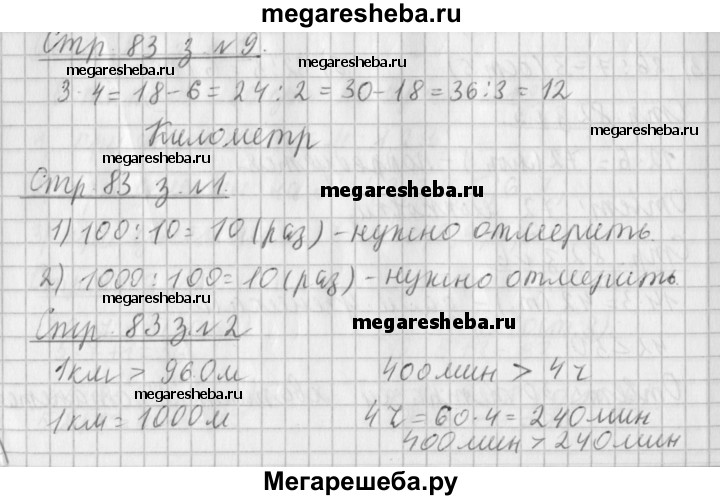 megaresheba.ru
Стр. 83 з. №9.
megaresheba.ru
megaresheba.ru
3·4=18-6=24:2=30-18=36:3=12
megaresheba.ru
Километр
megaresheba.ru
Стр. 83 з. №1.
megaresheba.ru
1) 100:10= 10 (раз) - нужно отмерить.
2) 1000:100=10 (раз) - нужно отмерить.
megaresheba.ru
Стр. 83 з. №2
megaresheba.ru
1км > 960м 400мин > 4ч
megaresheba.ru
1км = 1000м 4ч = 60·4 = 240мин
400мин > 240мин
Мегарешеба.ру